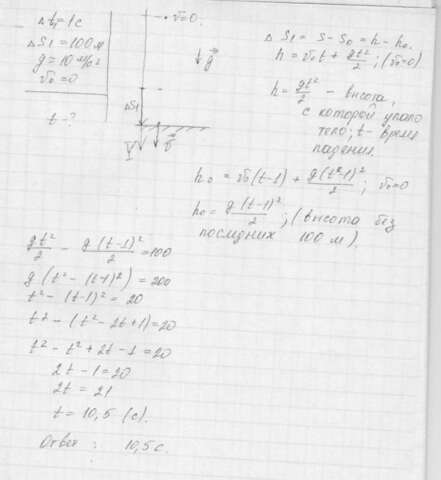 Δt₁ = 1 c
ΔS₁ = 100 м
g = 10 м/с²
v₀ = 0
t - ?
v₀ = 0.
g
ΔS₁
Y
v
ΔS₁ = S - S₀ = h - h₀.
h = v₀t + gt²/2 ; (v₀=0)
h = gt²/2 - высота,
с которой упало
тело; t - время
падения.
h₀ = v₀(t-1) + g(t-1)²/2 ; v₀=0
h₀ = g(t-1)²/2 ; (высота без
последних 100 м).
gt²/2 - g(t-1)²/2 = 100
g(t² - (t-1)²) = 200
t² - (t-1)² = 20
t² - (t² - 2t + 1) = 20
t² - t² + 2t - 1 = 20
2t - 1 = 20
2t = 21
t = 10,5 (с).
Ответ: 10,5 с.